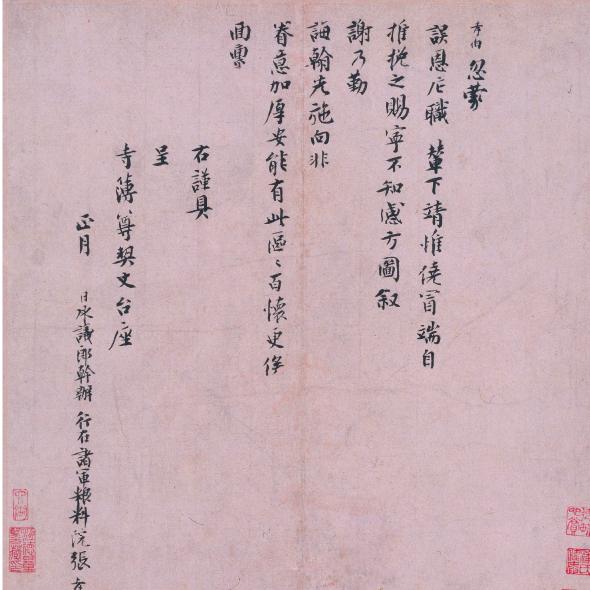 孝伯忽蒙
誤恩尼職輦下靖惟僥冒端自
推挽之賜寧不知感方圖叙
謝乃勤
誨翰先施向非
眷意加厚安能有此區〻百懷更俟
面彙
右謹具
呈
寺簿尊契丈台座
正月 日承議郎幹辦行在諸軍粮料院張孝